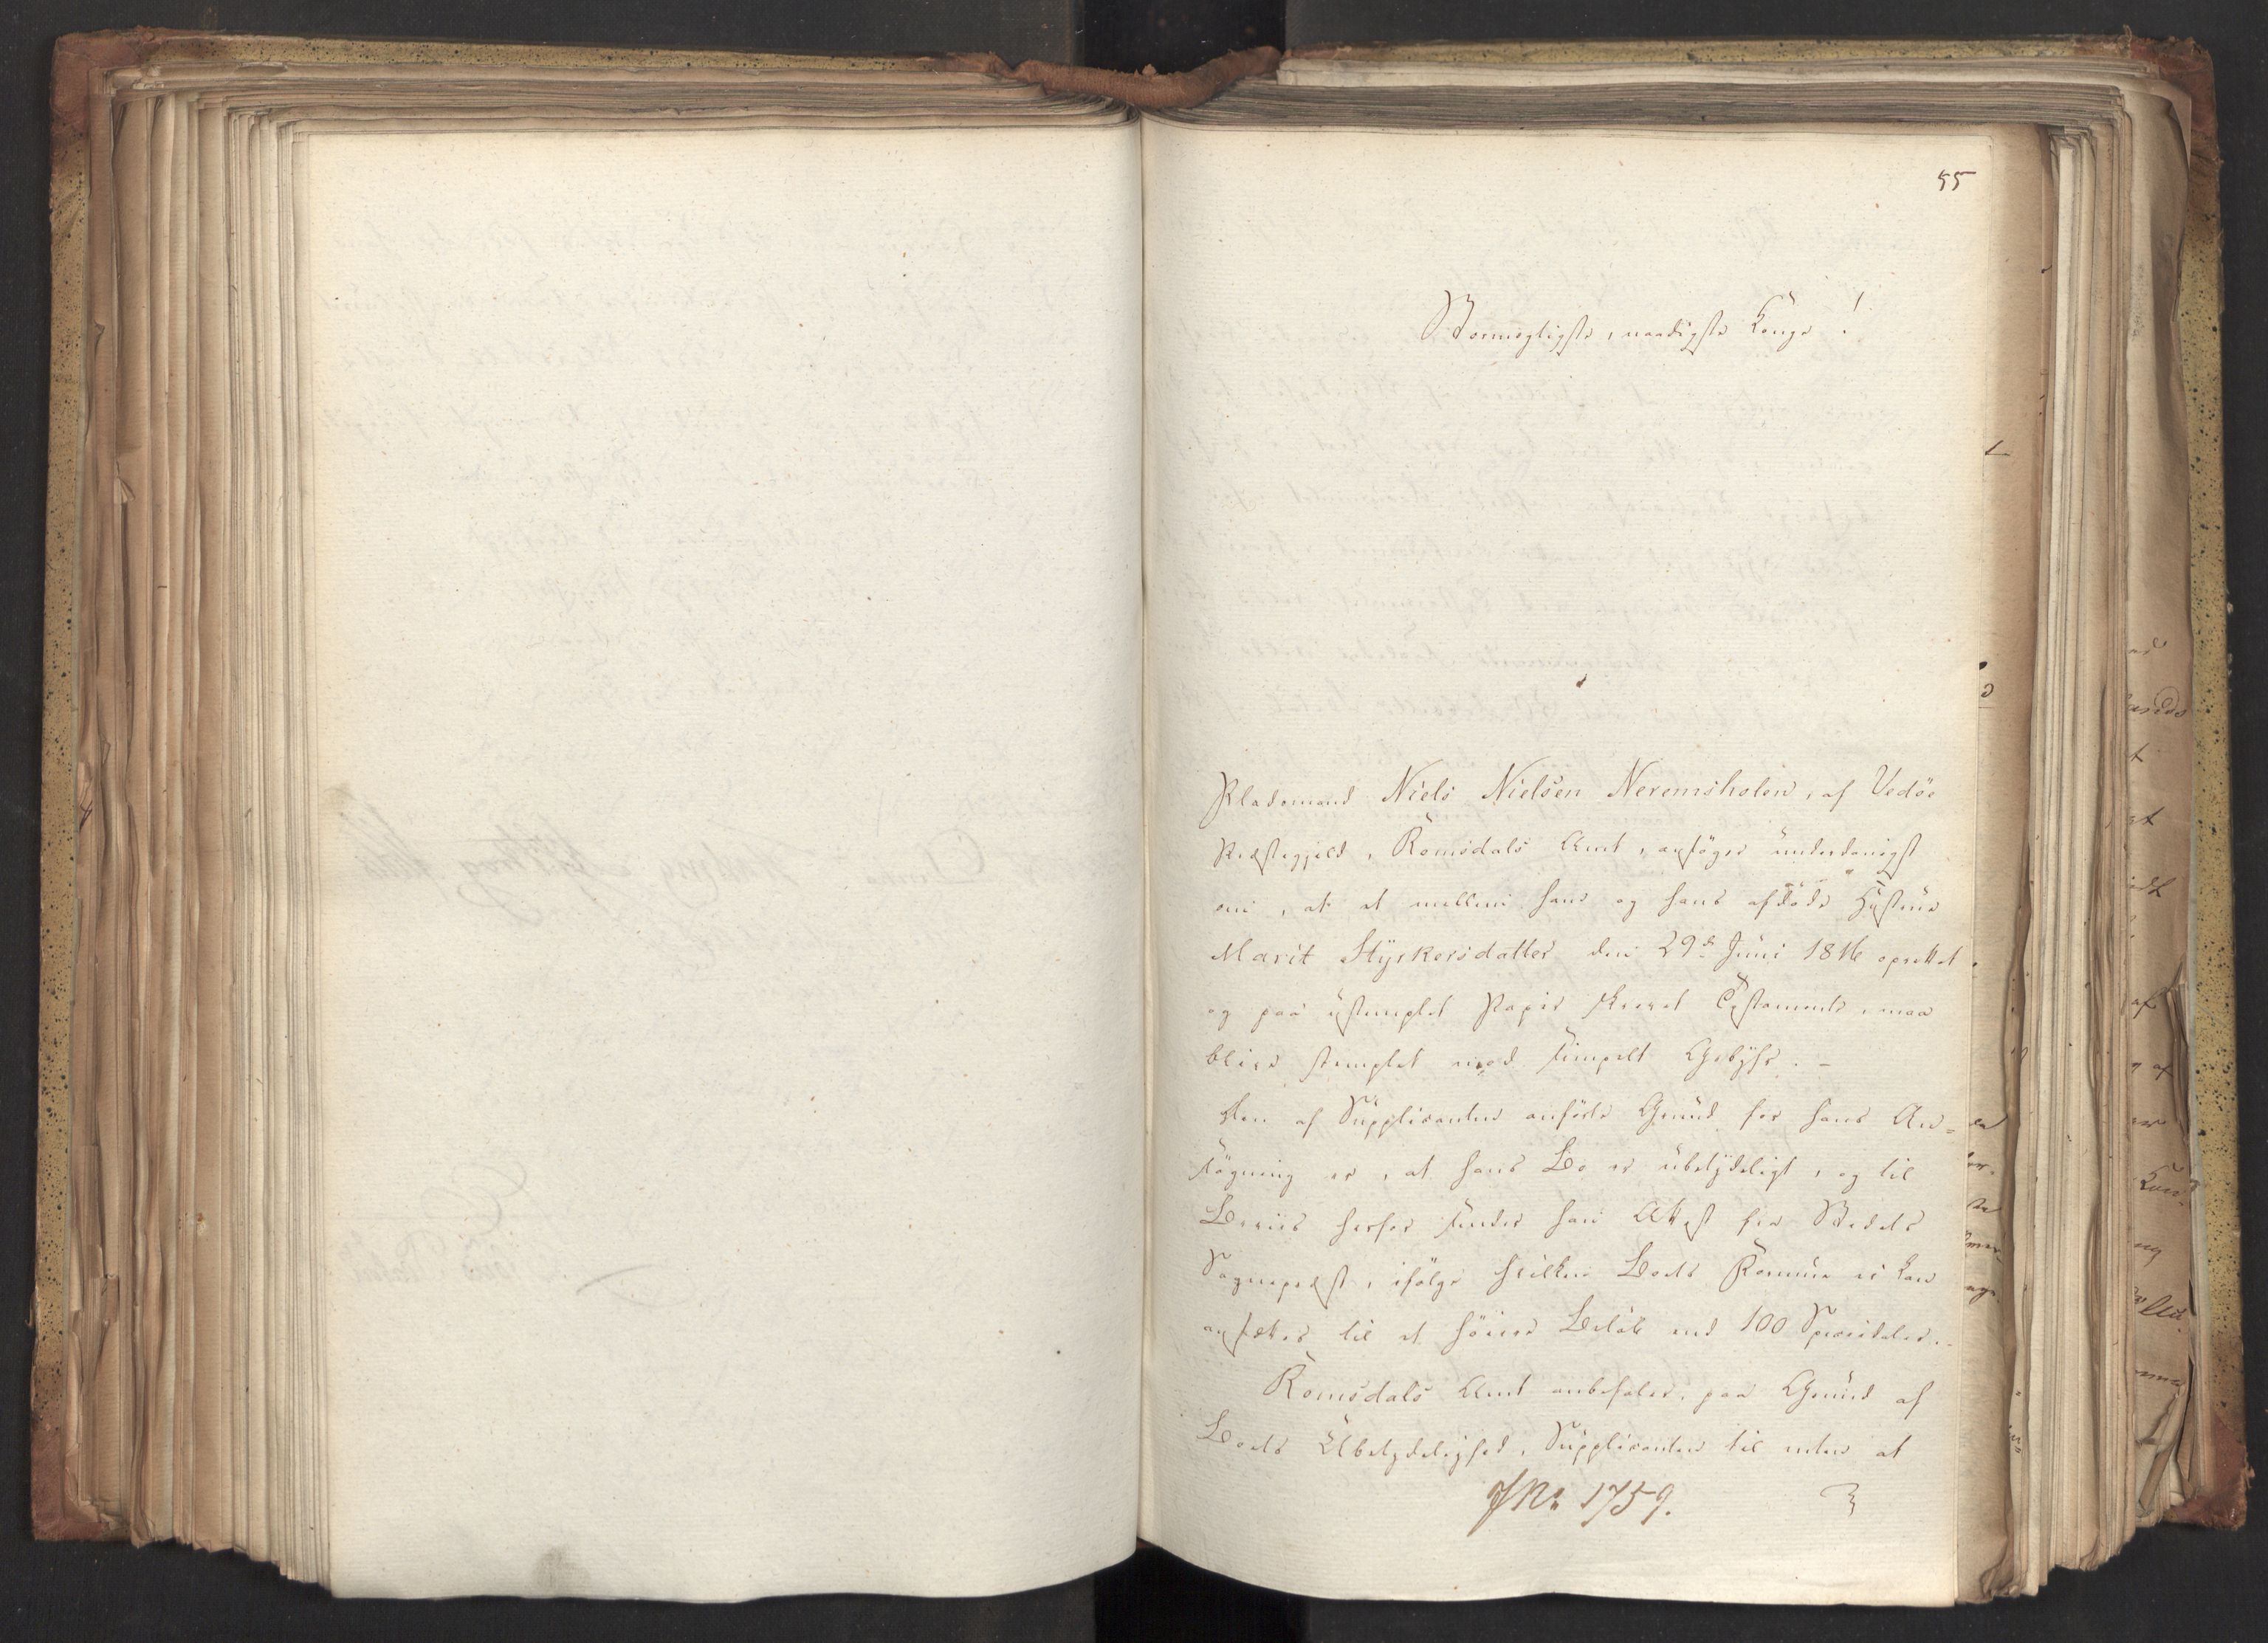 55
Stormægtigste, naadigste Konge!
Pladsmand Niels Nielsen Neremsholen, af Vedöe
Præstegjeld, Romsdals Amt, ansöger underdanigst
om, at et mellem ham og hans afdöde Hustrue
Marit Styrkersdatter den 29de Juni 1816 oprettet
og paa ustemplet Papir skrevet Testamente, maa
blive stemplet med simpelt Gebyhr. –
Den af Supplicanten anförte Grund for hans An=
sögning er, at hans Bo er ubetydeligt, og til
Beviis herfor sender han Attest fra Stedets
Sognepræst, ifölge hvilken Boets Formue ei kan
ansættes til et höiere Belöb end 100 Speciedaler.
Romsdals Amt anbefaler, paa Grund af
Boets Ubetydelighed, Supplicanten til uden at
JNr 1759.